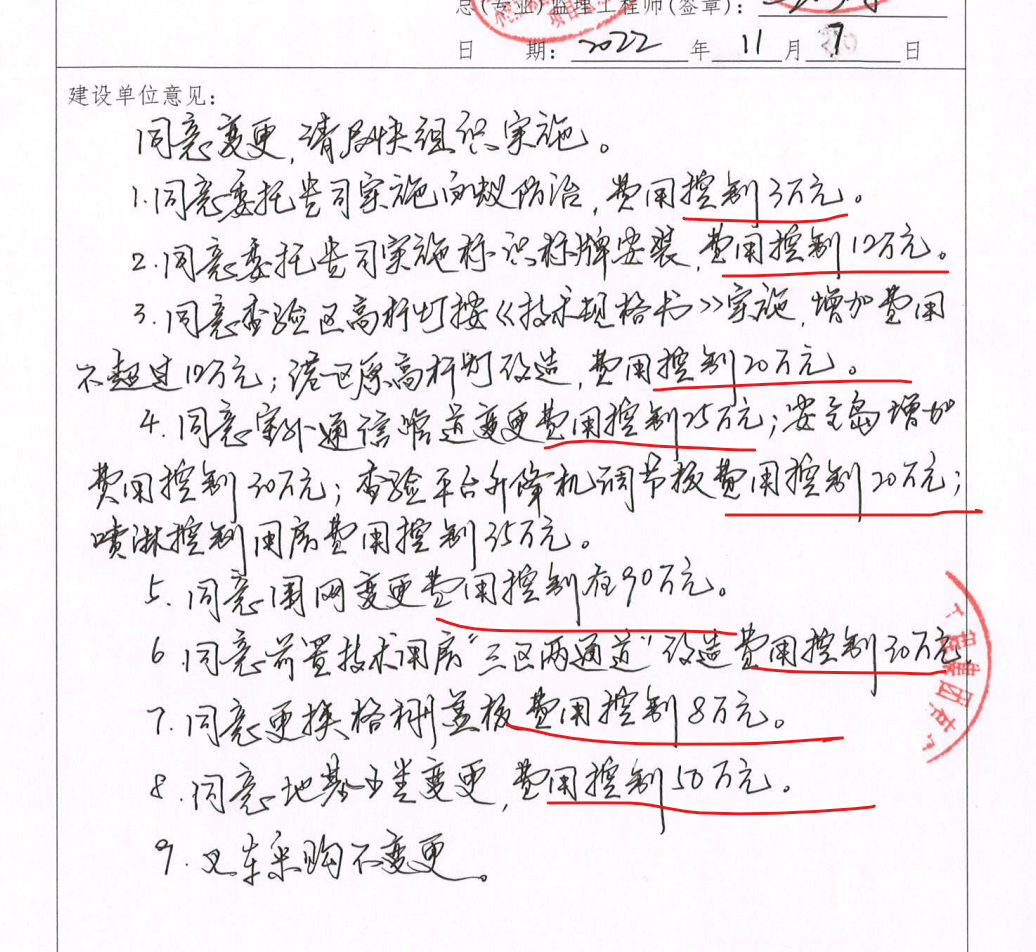 总(专业)监理工程师(签章):
日 期: 2022 年 11 月 7 日
建设单位意见:
同意变更,请尽快组织实施。
1.同意委托贵司实施白蚁防治,费用控制3万元。
2.同意委托贵司实施标识标牌安装,费用控制12万元。
3.同意查验区高杆灯按《技术规格书》实施,增加费用
不超过10万元;港区原高杆灯改造,费用控制20万元。
4.同意室外通信管道变更费用控制25万元;安全岛增加
费用控制30万元;查验平台升降机调节板费用控制20万元;
喷淋控制用房费用控制35万元。
5.同意围网变更费用控制在90万元。
6 同意前置技术用房“三区两通道”改造费用控制30万元
7.同意更换格栅盖板费用控制8万元。
8.同意地基 类变更,费用控制50万元。
9.叉车采购不变更。